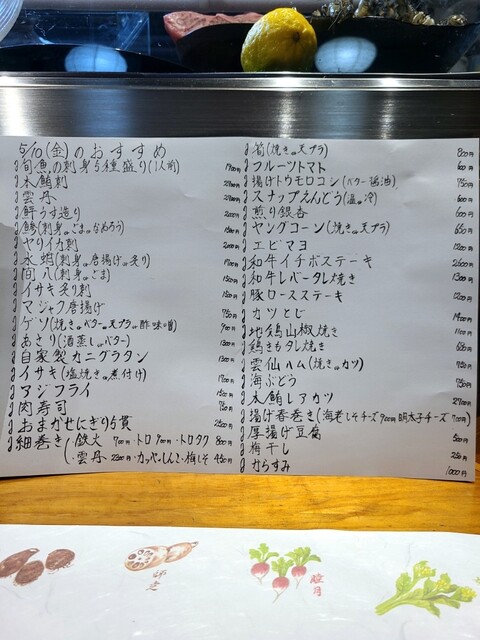 5/10(金)のおすすめ
旬魚の刺身5種盛り(1人前) 1900円
本鮪刺
雲丹
鮃うす造り 2000円
鯵(刺身 or ごま or なめろう)
ヤリイカ刺
水蛸(刺身 or 唐揚げ or 炙り)
間八(刺身 or ごま)
イサキ炙り刺
マジャク唐揚げ
ゲソ(焼き or バター or 天プラ or 酢味噌) 900円
あさり(酒蒸し or バター)
自家製カニグラタン 1300円
イサキ(塩焼き or 煮付け)
アジフライ
肉寿司
おまかせにぎり5貫 2500円
細巻き(・鉄火 700円・トロ 900円・トロタク 800円
・雲丹 2200円・カッパ・しんこ・梅しそ 450円
筍(焼き or 天プラ) 800円
フルーツトマト 600円
揚げトウモロコシ(バター醤油) 750円
スナップえんどう(温 or 冷) 600円
煎り銀杏 600円
ヤングコーン(焼き or 天プラ)
エビマヨ 1200円
和牛イチボステーキ 2600円
和牛レバータレ焼き 1300円
豚ロースステーキ 1200円
カツとじ 1400円
地鶏山椒焼き
鶏きもタレ焼き
雲仙ハム(焼き or カツ)
海ぶどう 750円
本鮪レアカツ 2700円
揚げ春巻き(海老しそチーズ 900円 明太子チーズ 700円)
厚揚げ豆腐 500円
梅干し 250円
からすみ 1000円
睦月